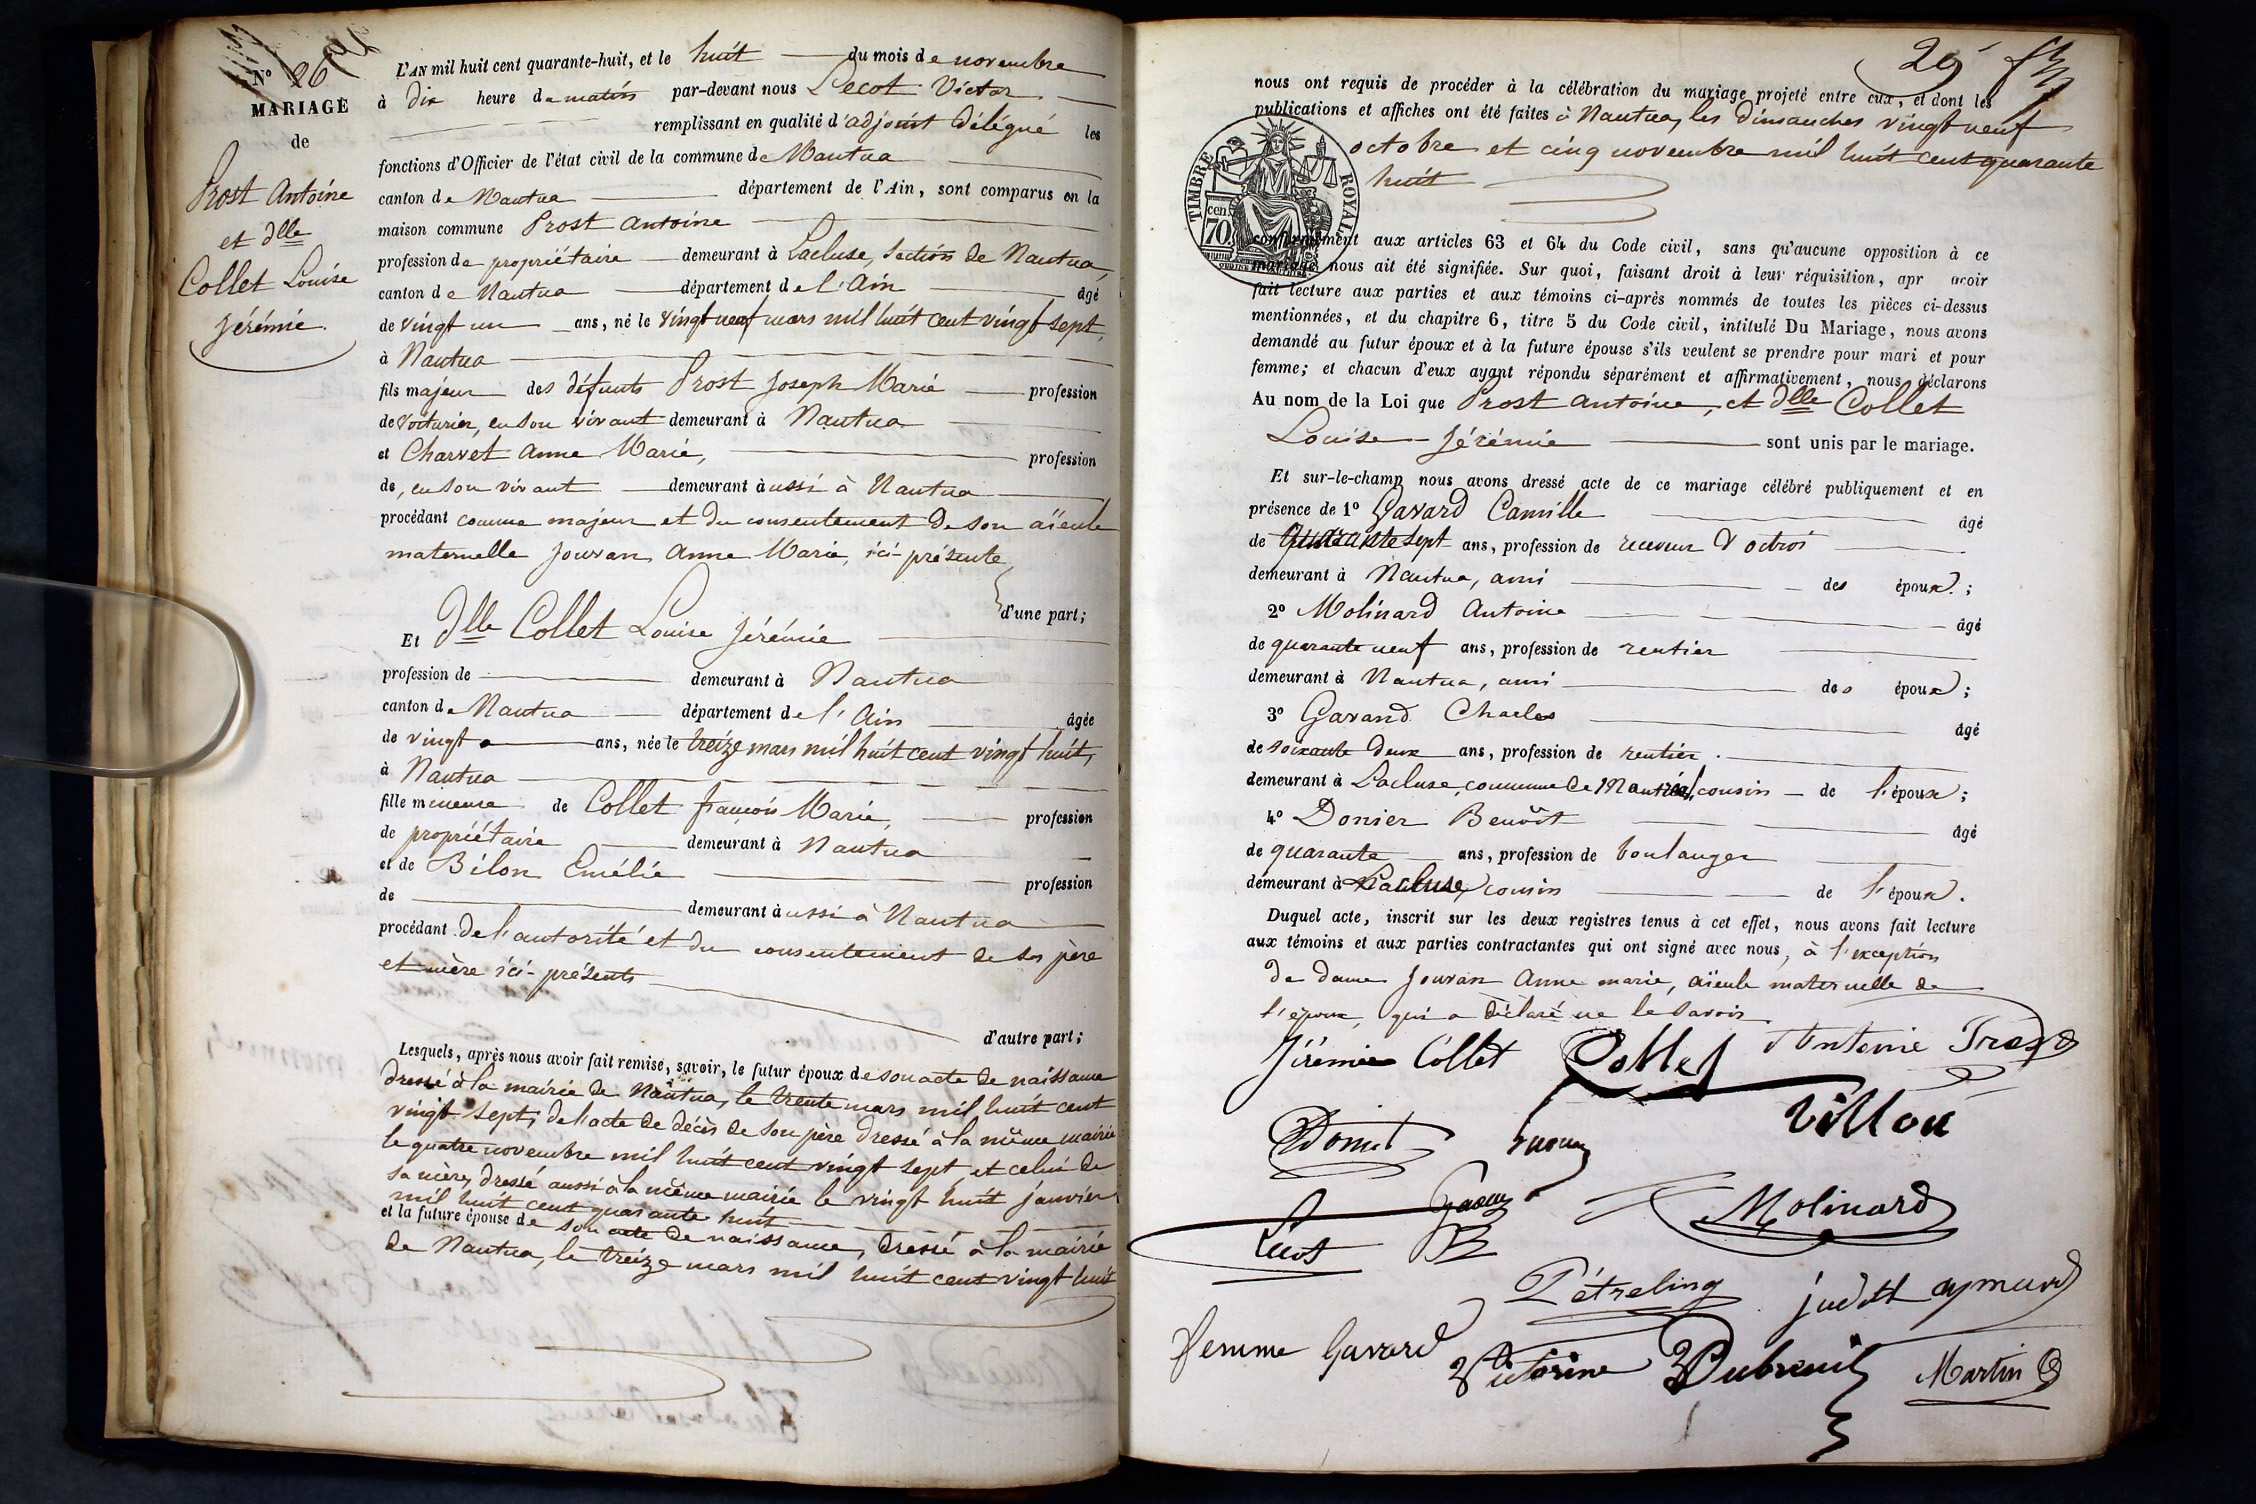 N° 26
MARIAGE
de
Prost Antoine
et dlle
Collet Louise
Jérémie.
L'AN mil huit cent quarante-huit, et le huit du mois de novembre
à dix heure du matin par-devant nous Lecot Victor
remplissant en qualité d'adjoint délégué les
fonctions d'Officier de l'état civil de la commune de Nantua
canton de Nantua département de l'Ain, sont comparus en la
maison commune Prost Antoine
profession de propriétaire demeurant à Lacluse, section de Nantua,
canton de Nantua département de l'Ain âgé
de vingt un ans, né le vingt neuf mars mil huit cent vingt sept,
à Nantua
fils majeur des défunts Prost Joseph Marie profession
de voiturier, en son vivant demeurant à Nantua
et Charvet Anne Marie, profession
de, en son vivant demeurant aussi à Nantua
procédant comme majeur et du consentement de son aïeule
maternelle Jouvan Anne Marie, ici-présente
d'une part;
Et Dlle Collet Louise Jérémie
profession de demeurant à Nantua
canton de Nantua département de l'Ain âgée
de vingt ans, née le treize mars mil huit cent vingt huit,
à Nantua
fille mineure de Collet françois Marie, profession
de propriétaire demeurant à Nantua
et de Bélon Emélie profession
de demeurant aussi à Nantua
procédant de l'autorité et du consentement de ses père
et mère ici-présents
d'autre part;
Lesquels, après nous avoir fait remise, savoir, le futur époux de son acte de naissance
dressé à la mairie de Nantua, le trente mars mil huit cent
vingt sept; de l'acte de décès de son père dressé à la même mairie
le quatre novembre mil huit cent vingt sept et celui de
sa mère, dressé aussi à la même mairie le vingt huit janvier
mil huit cent quarante huit
et la future épouse de son acte de naissance, dressé à la mairie
de Nantua, le treize mars mil huit cent vingt huit
nous ont requis de procéder à la célébration du mariage projeté entre eux, et dont les
publications et affiches ont été faites à Nantua, les dimanches vingt neuf
octobre et cinq novembre mil huit cent quarante
huit
TIMBRE ROYAL
70 cen.
conformément aux articles 63 et 64 du Code civil, sans qu'aucune opposition à ce
mariage nous ait été signifiée. Sur quoi, faisant droit à leur réquisition, apr avoir
fait lecture aux parties et aux témoins ci-après nommés de toutes les pièces ci-dessus
mentionnées, et du chapitre 6, titre 5 du Code civil, intitulé Du Mariage, nous avons
demandé au futur époux et à la future épouse s'ils veulent se prendre pour mari et pour
femme; et chacun d'eux ayant répondu séparément et affirmativement, nous déclarons
Au nom de la Loi que Prost Antoine, et Dlle Collet
Louise Jérémie sont unis par le mariage.
Et sur-le-champ nous avons dressé acte de ce mariage célébré publiquement et en
présence de 1° Gavard Camille âgé
de quarante sept ans, profession de receveur d'octroi
demeurant à Nantua, ami des époux;
2° Molinard Antoine âgé
de quarante neuf ans, profession de rentier
demeurant à Nantua, ami des époux;
3° Gavand Charles âgé
de soixante deux ans, profession de rentier.
demeurant à Lacluse, commune de cousin de l'époux;
4° Donier Benoît âgé
de quarante ans, profession de boulanger
demeurant à Lacluse, cousin de l'époux.
Duquel acte, inscrit sur les deux registres tenus à cet effet, nous avons fait lecture
aux témoins et aux parties contractantes qui ont signé avec nous, à l'exception
de dame Jouvan Anne marie, aïeule maternelle de
l'époux, qui a déclaré ne le savoir
Jérémie Collet Collet Antoine Prost
Villou
Lecot Molinard
Pétreling judith aymard
femme Gavard Victorine Dubreuil Martin